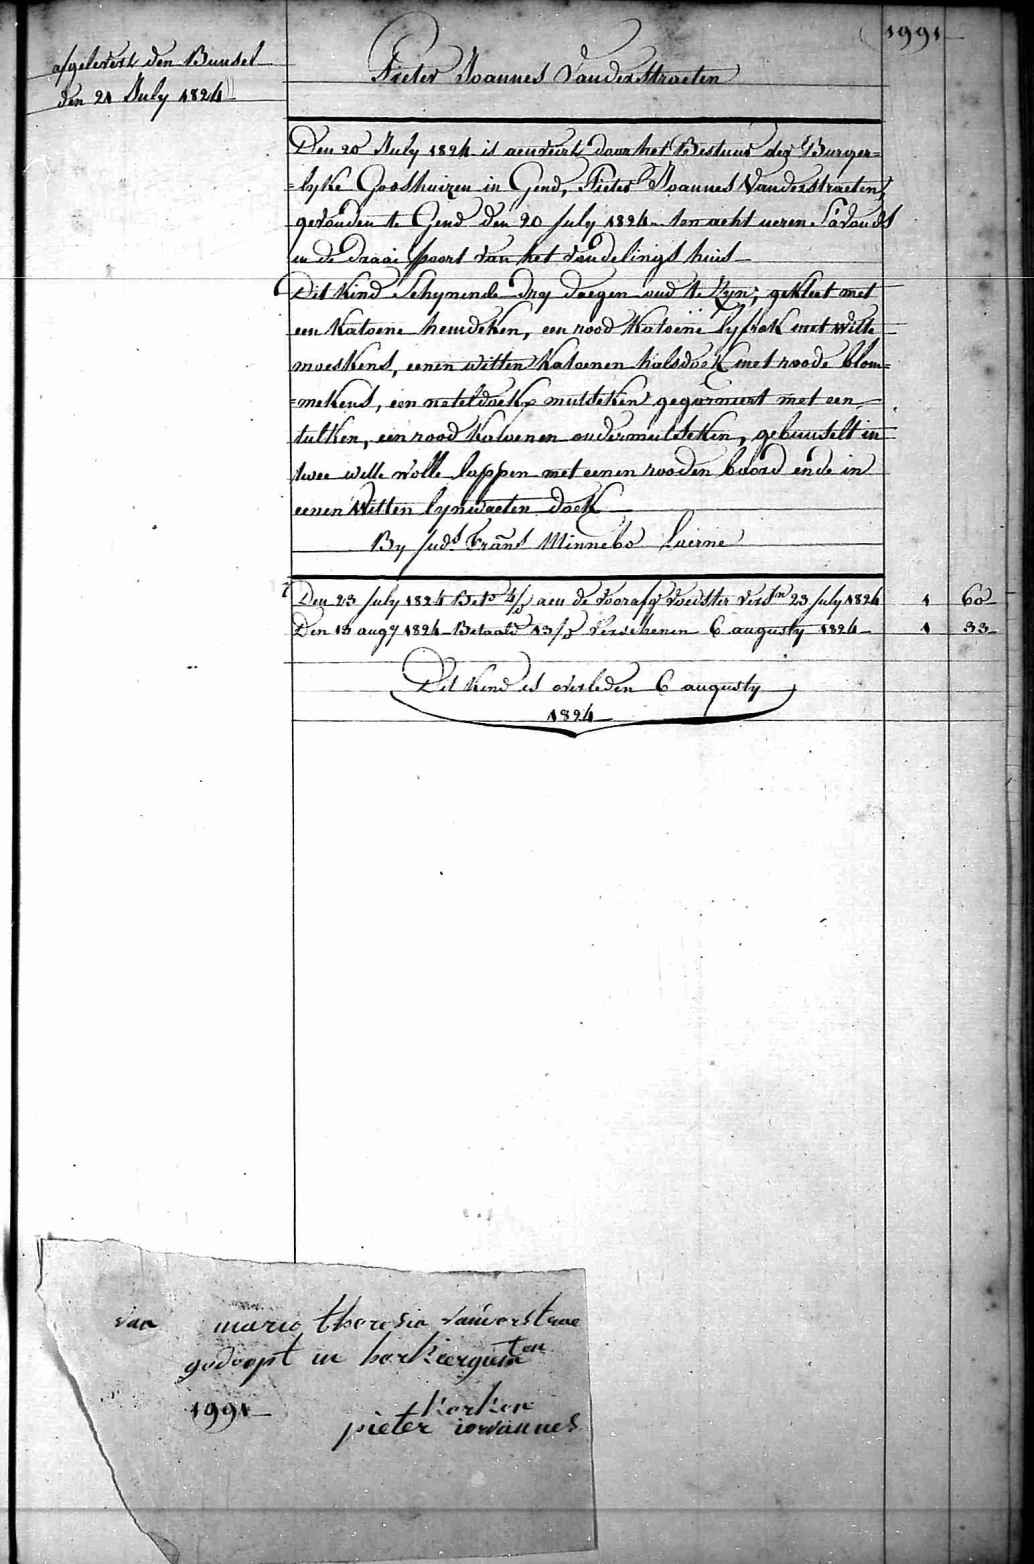 1991
afgelevert den Bundel
den 21 July 1824
Pieter Joannes Vanderstraeten
Den 20 July 1824 is aenveirt door het Bestuur der Burger=
=lyke Godshuizen in Gend, Pieter Joannes Vanderstraeten,
gevonden te Gend den 20 July 1824 ten acht ueren s'avonds
in de Draai Poort van het Vondelings huis
Dit Kind schynende dry daegen oud te zyn, gekleet met
een Katoene hemdeken, een rood Katoene lyfrok met witte
moeskens, eenen witten Katoenen halsdoek met roode blom=
=mekens, een neteldoekx mutseken gegarneert met een
tulken, een rood Katoenen ondermutseken, gebuuselt in
twee witte wolle lappen met eenen rooden boord ende in
eenen Witten lynwaeten doek
By Juds Frans Minnebo Laerne
Den 23 July 1824 Beto 4/ aen de voorafg Voedster Versn 23 July 1824 1 60
Den 13 augy 1824 Betaald 13/ Verschenen 6 augusty 1824 1 33
Dit Kind is overleden 6 augusty
1824
van marie theresia vanderstrae
ten
gedoopt in
1991 kerken
pieter joannes